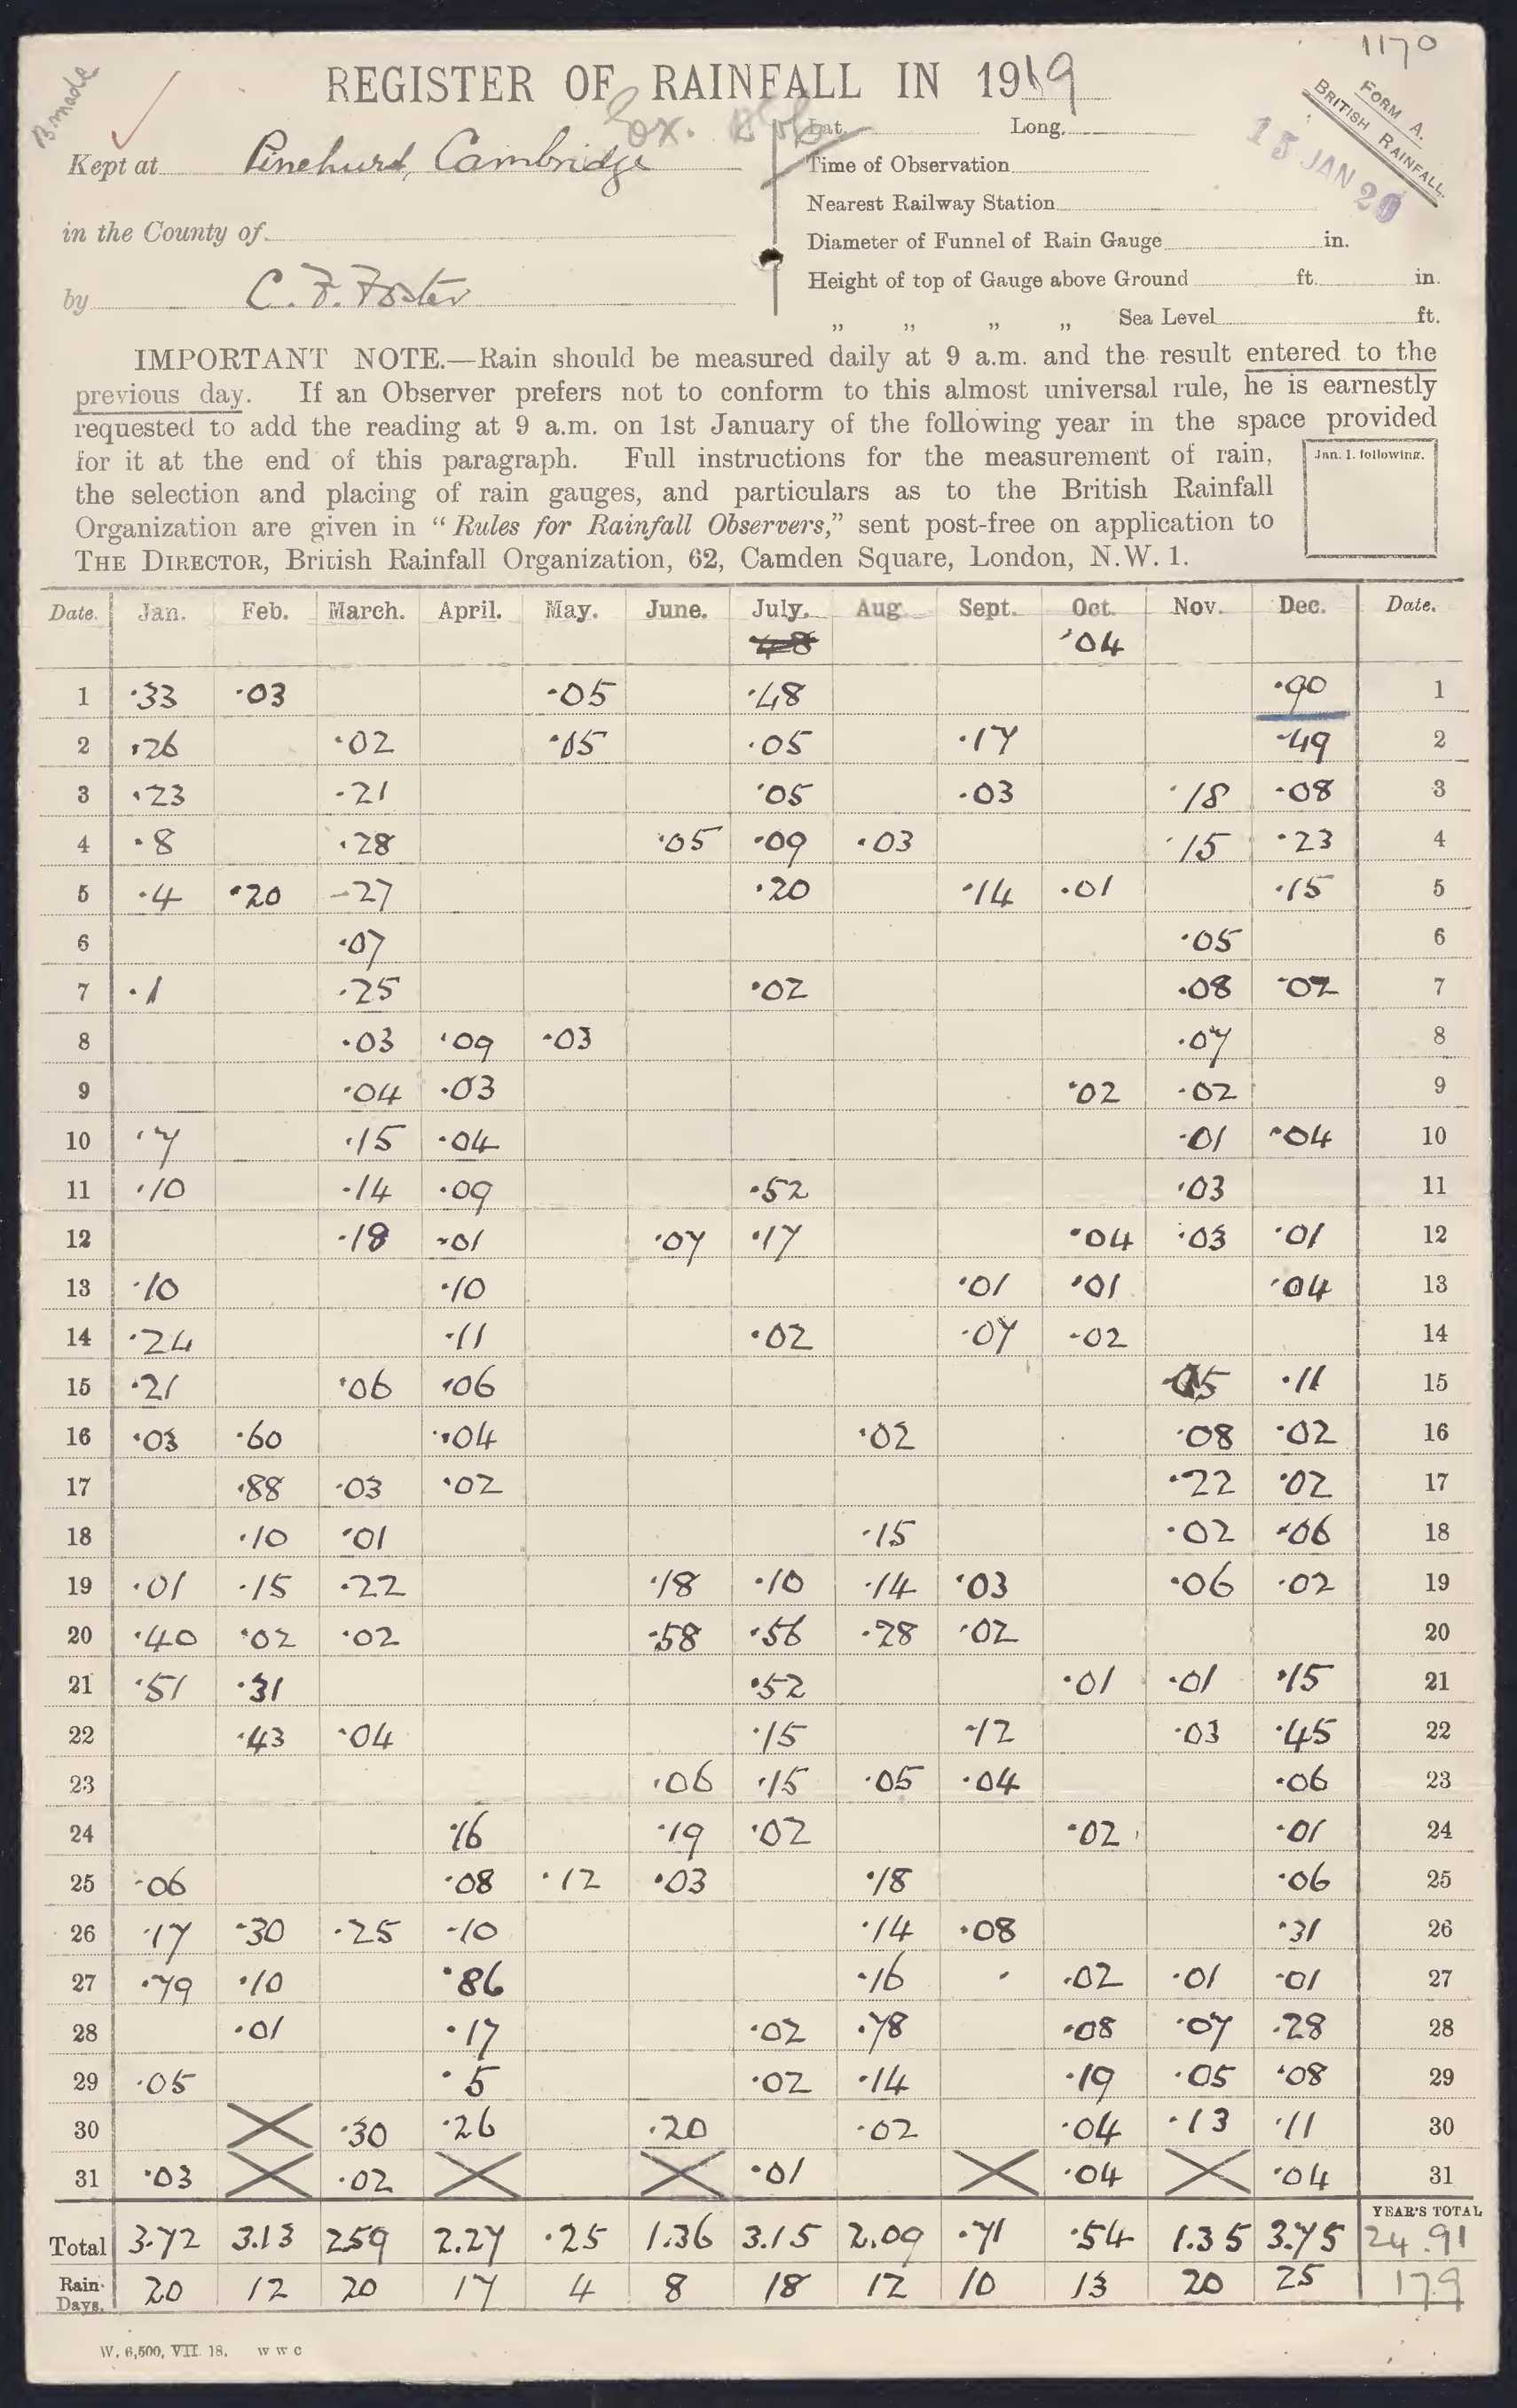 1170
B. made
REGISTER OF RAINFALL IN 1919
FORM A.
BRITISH RAINFALL.
15 JAN 20
Lat. Long.
Kept at Pinehurst, Cambridge
Time of Observation
Nearest Railway Station
in the County of
Diameter of Funnel of Rain Gauge in.
by C. F. Foster
Height of top of Gauge above Ground ft. in.
„ „ „ „ Sea Level ft.
IMPORTANT NOTE.—Rain should be measured daily at 9 a.m. and the result entered to the
previous day. If an Observer prefers not to conform to this almost universal rule, he is earnestly
requested to add the reading at 9 a.m. on 1st January of the following year in the space provided
for it at the end of this paragraph. Full instructions for the measurement of rain,
Jan. 1. following.
the selection and placing of rain gauges, and particulars as to the British Rainfall
Organization are given in “Rules for Rainfall Observers,” sent post-free on application to
THE DIRECTOR, British Rainfall Organization, 62, Camden Square, London, N.W. 1.
Date. Jan. Feb. March. April. May. June. July. Aug Sept. Oct. Nov. Dec. Date.
48 .04
1 .33 .03 .05 .48 .90 1
2 .26 .02 .05 .05 .17 .49 2
3 .23 .21 .05 .03 .18 .08 3
4 .8 .28 .05 .09 .03 .15 .23 4
5 .4 .20 .27 .20 .14 .01 .15 5
6 .07 .05 6
7 .1 .25 .02 .08 .02 7
8 .03 .09 .03 .07 8
9 .04 .03 .02 .02 9
10 .7 .15 .04 .01 .04 10
11 .10 .14 .09 .52 .03 11
12 .18 .01 .07 .17 .04 .03 .01 12
13 .10 .10 .01 .01 .04 13
14 .24 .11 .02 .07 .02 14
15 .21 .06 .06 .05 .11 15
16 .03 .60 .04 .02 .08 .02 16
17 .88 .03 .02 .22 .02 17
18 .10 .01 .15 .02 .06 18
19 .01 .15 .22 .18 .10 .14 .03 .06 .02 19
20 .40 .02 .02 .58 .56 .28 .02 20
21 .51 .31 .52 .01 .01 .15 21
22 .43 .04 .15 .12 .03 .45 22
23 .06 .15 .05 .04 .06 23
24 .16 .19 .02 .02 .01 24
25 .06 .08 .12 .03 .18 .06 25
26 .17 .30 .25 .10 .14 .08 .31 26
27 .79 .10 .86 .16 . .02 .01 .01 27
28 .01 .17 .02 .78 .08 .07 .28 28
29 .05 .5 .02 .14 .19 .05 .08 29
30 .30 .26 .20 .02 .04 .13 .11 30
31 .03 .02 .01 .04 .04 31
YEAR'S TOTAL
Total 3.72 3.13 2.59 2.27 .25 1.36 3.15 2.09 .71 .54 1.35 3.75 24.91
Rain-Days. 20 12 20 17 4 8 18 12 10 13 20 25 179
W. 6,500, VII. 18. w w c